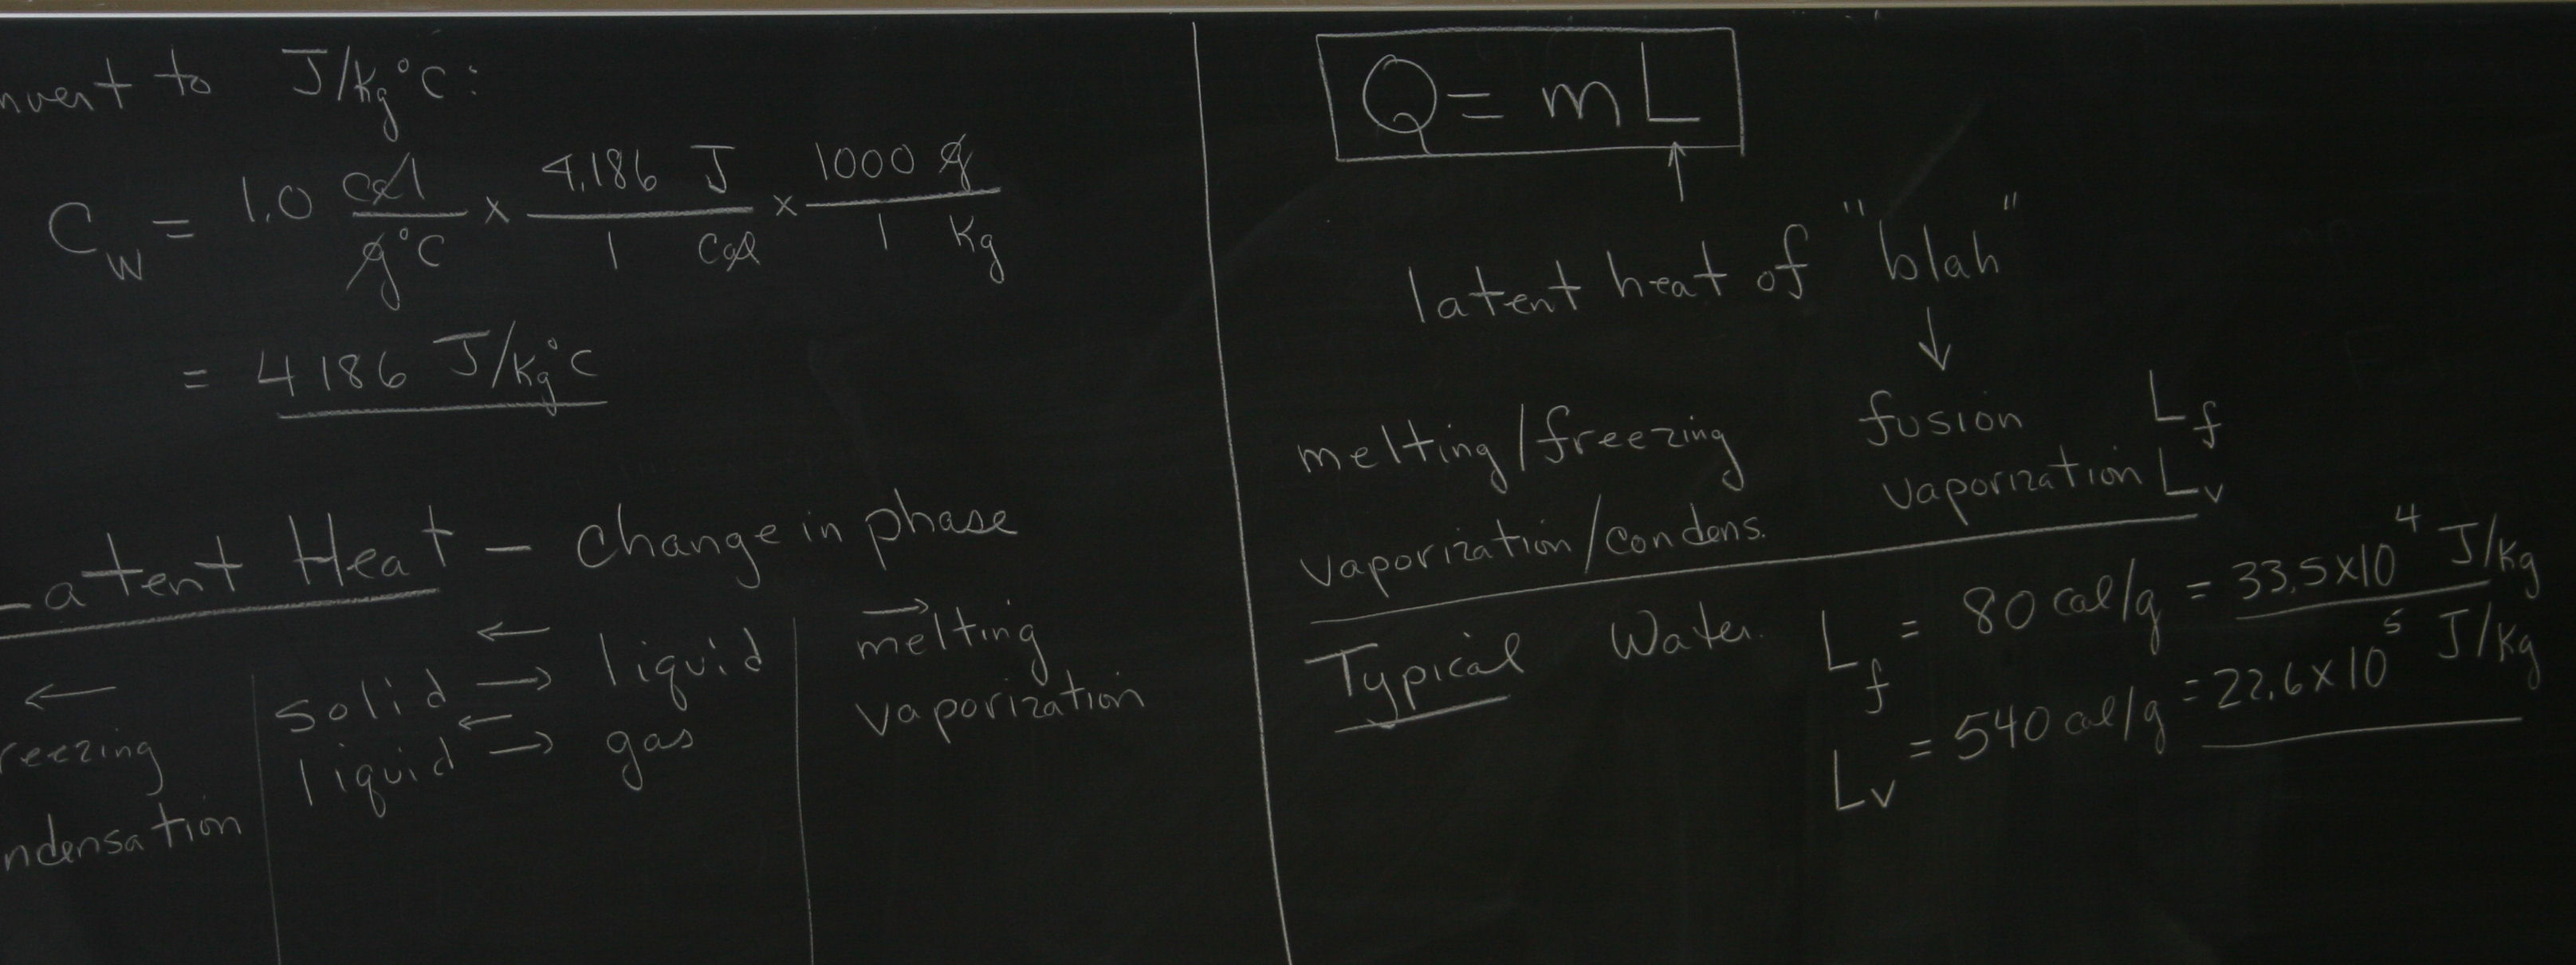 nvert to J/kg°C:
C_w = 1.0 cal/g°C × 4.186 J/1 cal × 1000 g/1 kg
= 4186 J/kg°C
Latent Heat – Change in phase
← solid ⇄ liquid → melting
reezing liquid ⇄ gas vaporization
ndensation
Q = mL
↑
latent heat of "blah"
↓
melting/freezing fusion L_f
vaporization/condens. vaporization L_v
Typical Water. L_f = 80 cal/g = 33.5×10^4 J/kg
L_v = 540 cal/g = 22.6×10^5 J/kg